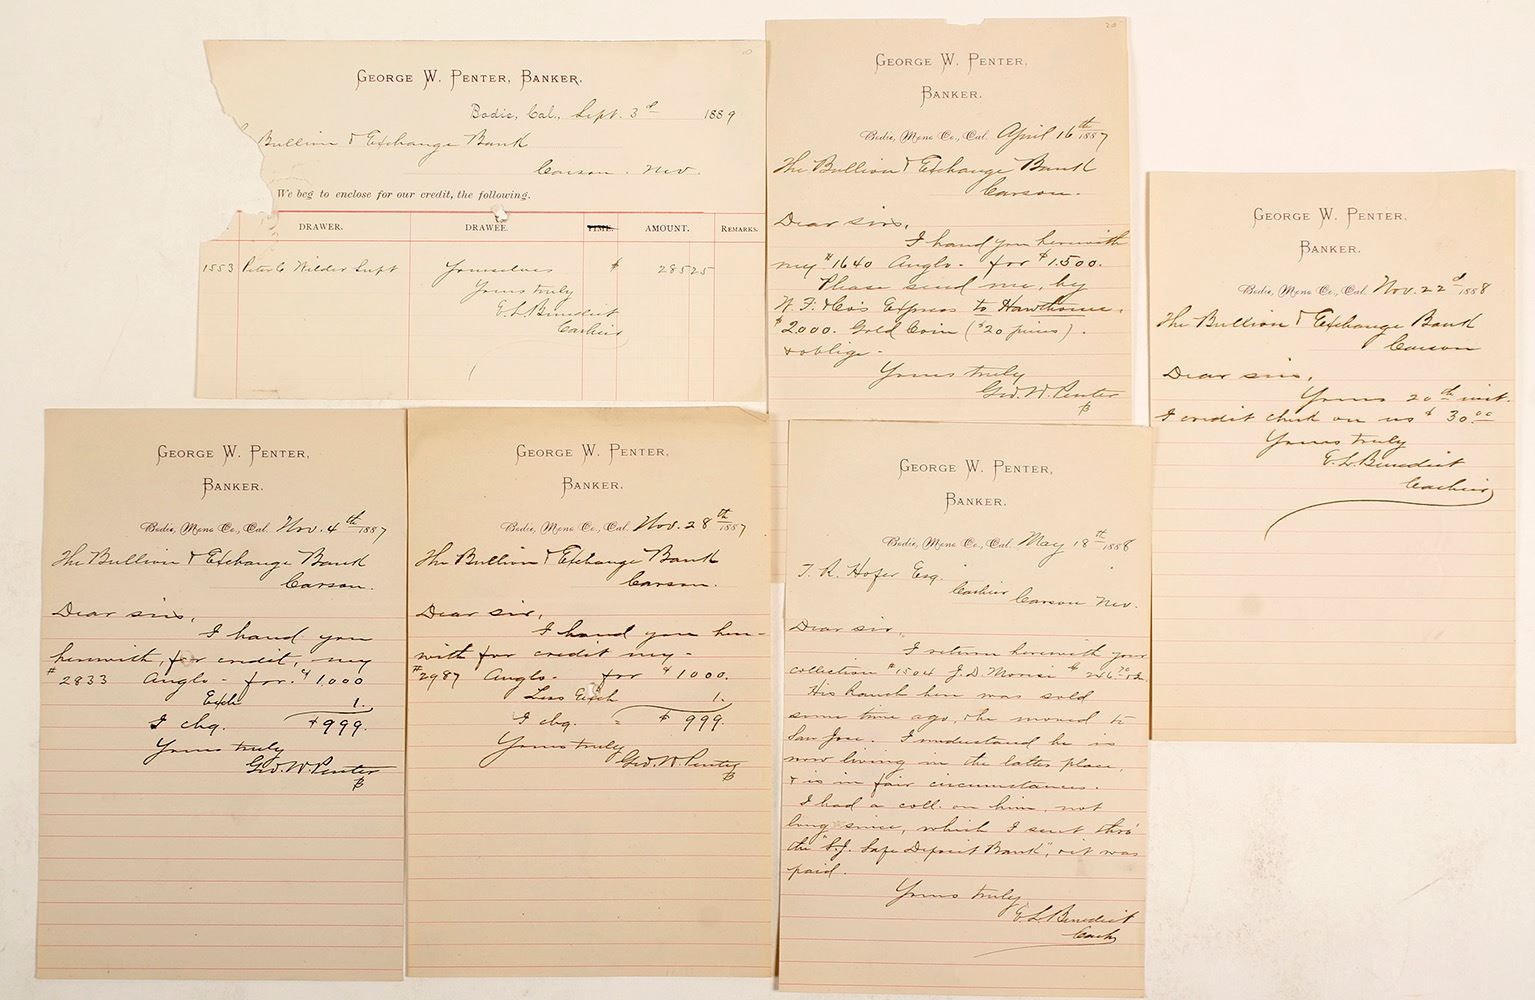 GEORGE W. PENTER, BANKER.
Bodie, Cal., Sept. 3d 1889
Bullion & Exchange Bank
Carson. Nev.
We beg to enclose for our credit, the following.
DRAWER. DRAWEE. TIME. AMOUNT. REMARKS.
1553 Peter C Wilder Supt Yourselves $ 285 25
Yours truly
E. L. Benedict
Cashier
20
GEORGE W. PENTER,
BANKER.
Bodie, Mono Co., Cal. April 16th 1887
The Bullion & Exchange Bank
Carson.
Dear sirs,
I hand you herewith
my #1640 Anglo - for $1.500.
Please send me, by
W. F. & Co's Express to Hawthorne.
$2000. Gold Coin ($20 pieces).
& oblige -
Yours truly
Geo. W. Penter
B
GEORGE W. PENTER,
BANKER.
Bodie, Mono Co., Cal. Nov. 22d 1888
The Bullion & Exchange Bank
Carson
Dear sirs,
Yours 20th inst.
I credit check on us $30.00
Yours truly
E. L. Benedict
Cashier
GEORGE W. PENTER,
BANKER.
Bodie, Mono Co., Cal. Nov. 4th 1887
The Bullion & Exchange Bank
Carson.
Dear sirs,
I hand you
herewith, for credit, my
#2833 Anglo - for $1.000
Exch 1.
I chg. $999.
Yours truly
Geo. W. Penter
B
GEORGE W. PENTER,
BANKER.
Bodie, Mono Co., Cal. Nov. 28th 1887
The Bullion & Exchange Bank
Carson.
Dear sir,
I hand you here-
with for credit my -
#2987 Anglo - for $1000.
Less Exch 1.
I chg. = $999.
Yours truly
Geo. W. Penter
B
GEORGE W. PENTER,
BANKER.
Bodie, Mono Co., Cal. May 18th 1888
T. R. Hofer Esq.
Cashier
Carson Nev.
Dear sir,
I return herewith your
collection #1504 J. D. Morisi $246.70
His Ranch here was sold
some time ago, & he moved to
San Jose. I understand he is
now living in the latter place,
& is in fair circumstances.
I had a coll. on him, not
long since, which I sent thro'
the "S. J. Safe Deposit Bank", & it was
paid.
Yours truly
E. L. Benedict
Cash